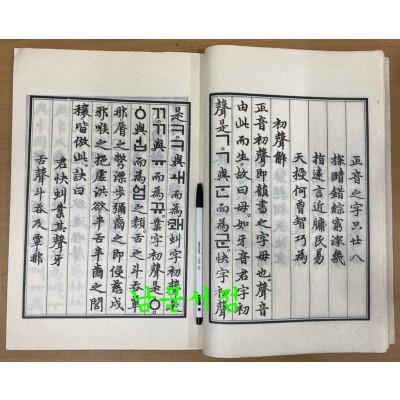 正音之字只廿八
探賾錯綜窮深幾
指遠言近牖民易
天授何曾智巧爲
初聲解
正音初聲即韻書之字母也聲音
由此而生故曰母如牙音君字初
聲是ㄱㄱ與ㅜㄴ而爲군快字初聲
是ㅋㅋ與ㅙ而爲쾌虯字初聲是
ㄲㄲ與ㅠ而爲뀨業字初聲是ㆁ
ㆁ與ㅓㅂ而爲업之類舌之斗呑覃
那脣之彆漂步彌齒之即侵慈戌
邪喉之挹虛洪欲半舌半齒之閭
穰皆倣此訣曰
君快虯業其聲牙
舌聲斗呑及覃那
남문서점